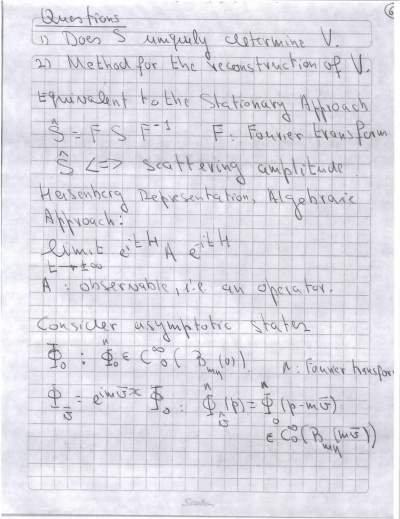 6
Questions
1) Does S uniquely determine V.
2) Method for the reconstruction of V.
Equivalent to the Stationary Approach
Ŝ = F S F⁻¹ F: Fourier transform
Ŝ <=> scattering amplitude.
Heisenberg Representation, Algebraic
Approach:
limit e^{itH} A e^{-itH}
t→±∞
A: observable, i.e an operator.
Consider asymptotic states
Φ₀ : Φ̂₀ ∈ C₀^∞(B_{mη}(0)). ^: Fourier transform
Φ_v̄ = e^{imv̄x} Φ₀ : Φ̂_v̄(p) = Φ̂₀(p-mv̄)
∈ C₀^∞(B_{mη}(mv̄))